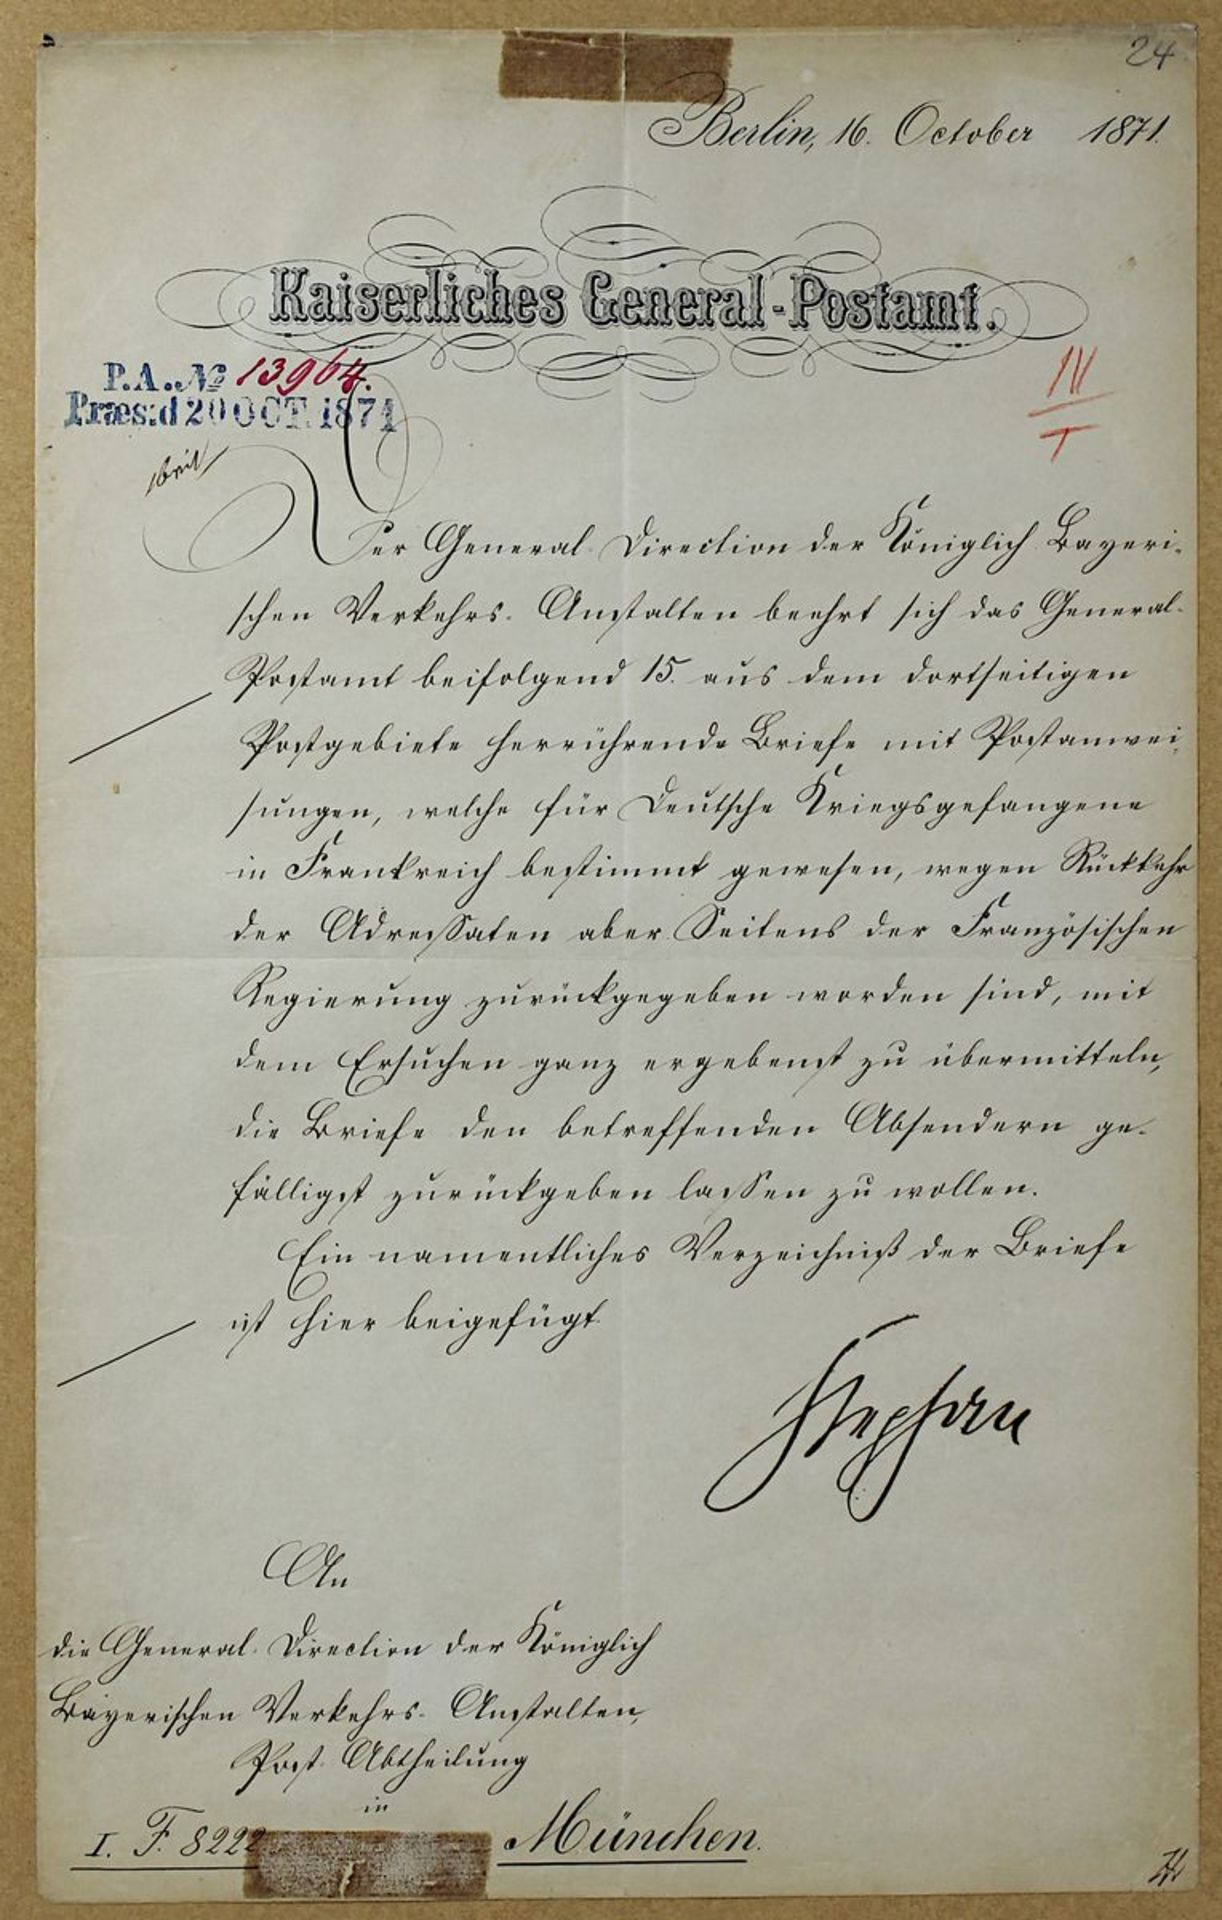 24
Berlin, 16. October 1871.
Kaiserliches General-Postamt.
P.A. № 13964.
Præs: d 20 OCT. 1871
III
I
Der General-Direction der Königlich Bayeri-
schen Verkehrs-Anstalten beehrt sich das General-
Postamt beifolgend 15. aus dem dortseitigen
Postgebiete herrührende Briefe mit Postanwei-
sungen, welche für Deutsche Kriegsgefangene
in Frankreich bestimmt gewesen, wegen Rückkehr
der Adressaten aber Seitens der Französischen
Regierung zurückgegeben worden sind, mit
dem Ersuchen ganz ergebenst zu übermitteln,
die Briefe den betreffenden Absendern ge-
fälligst zurückgeben lassen zu wollen.
Ein namentliches Verzeichniß der Briefe
ist hier beigefügt.
Stephan
An
die General-Direction der Königlich
Bayerischen Verkehrs-Anstalten,
Post-Abtheilung
in
München.
I. F. 8222